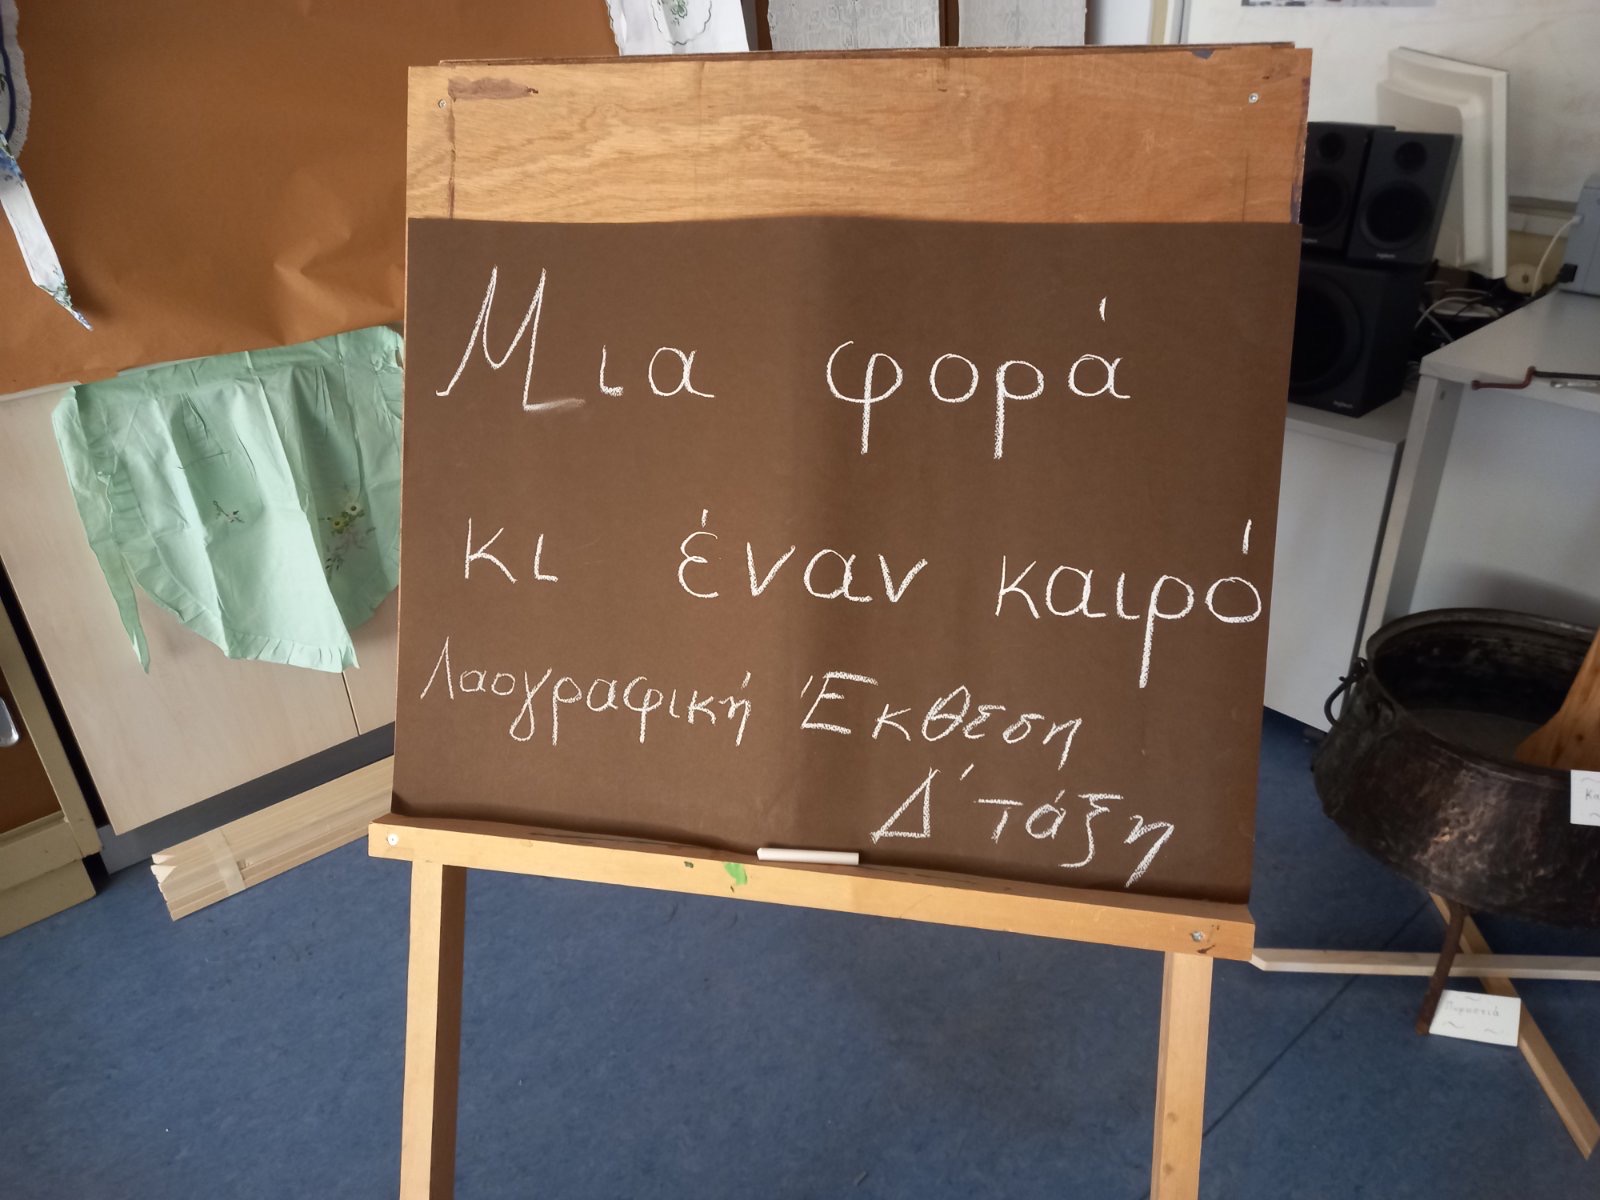 Μια φορά
κι έναν καιρό
Λαογραφική Έκθεση
Δ΄ τάξη
Πυροστιά